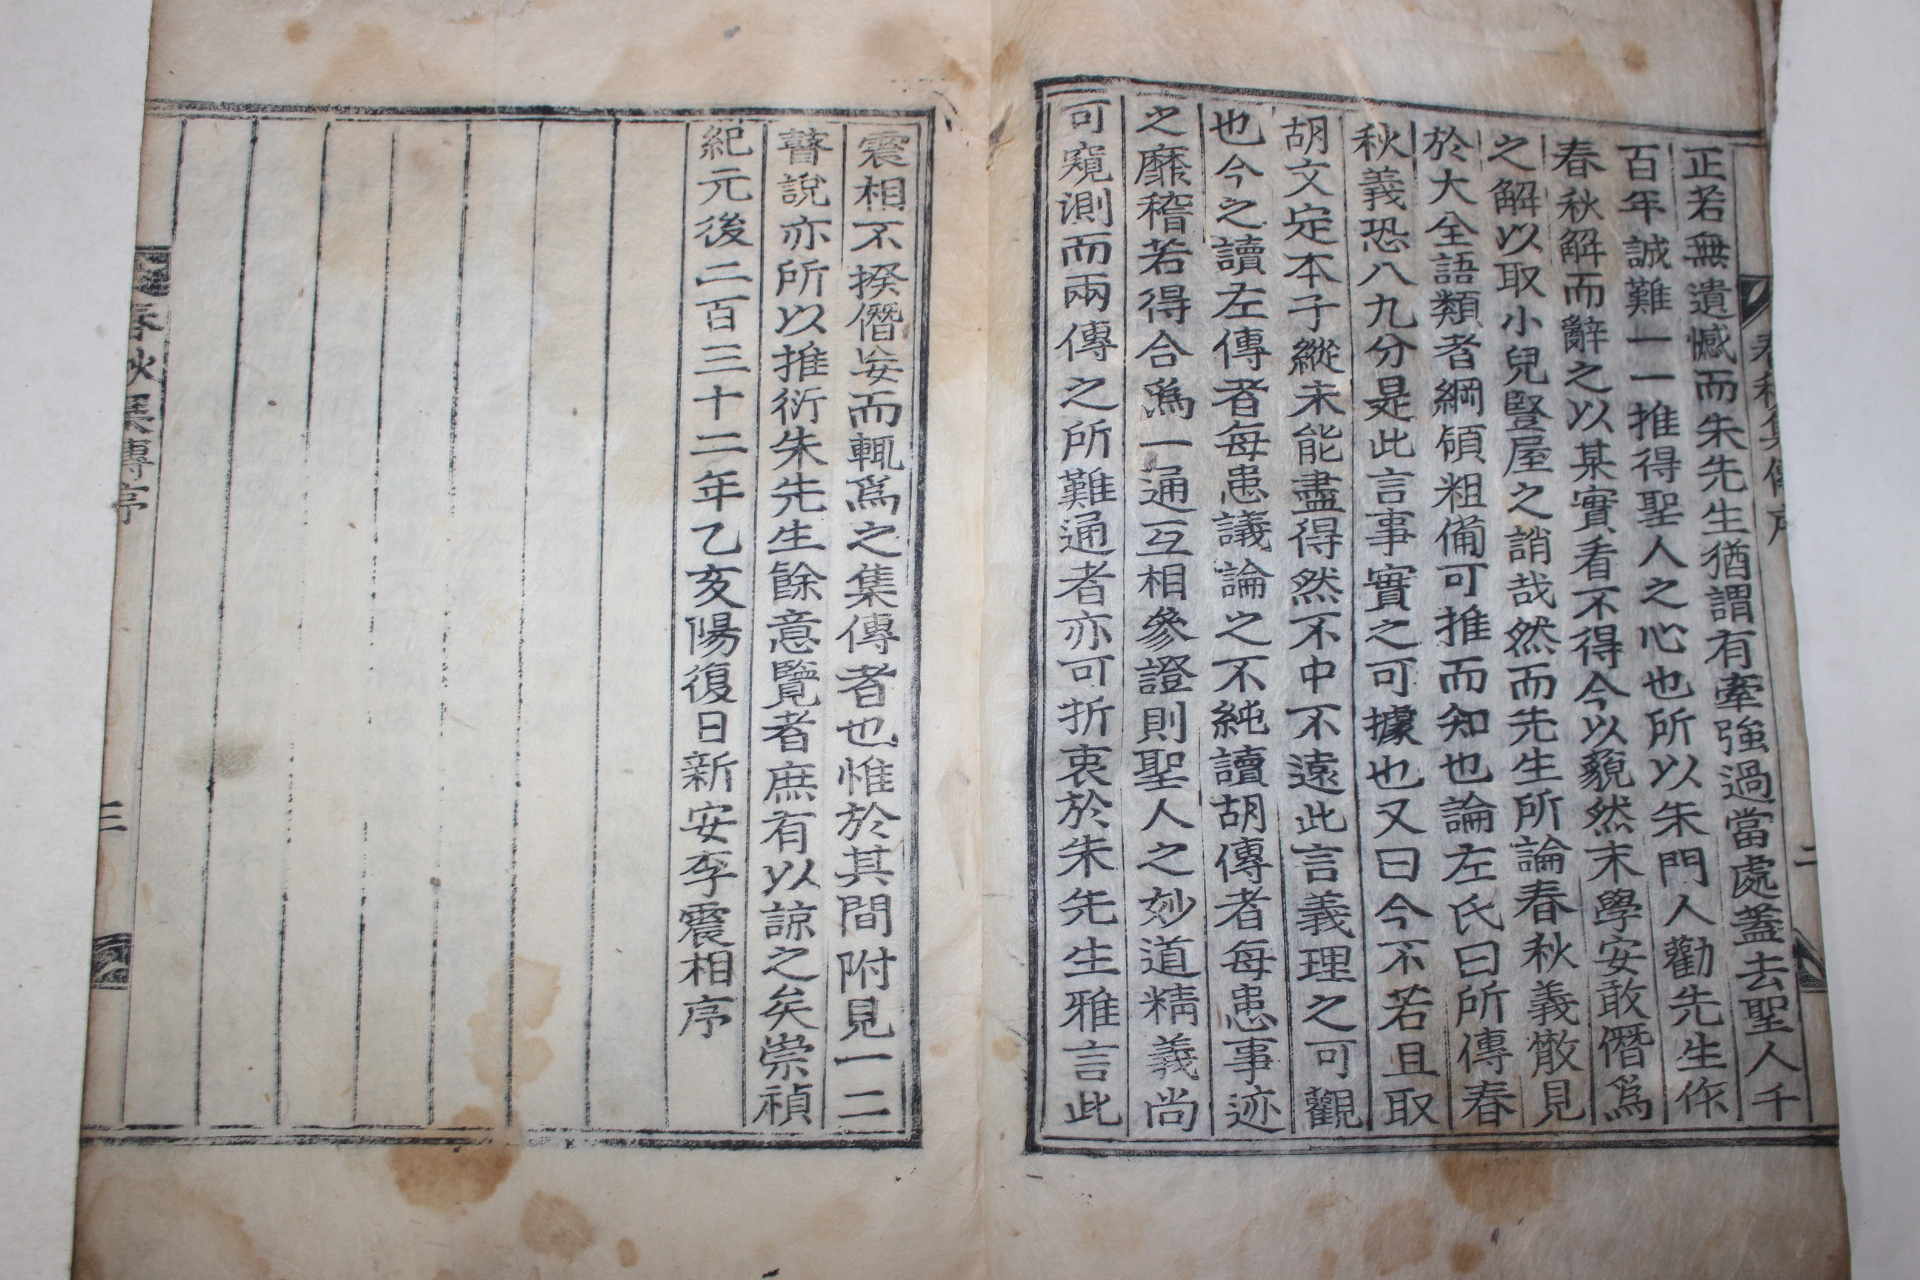 春秋集傳序
二
正若無遺憾而朱先生猶謂有牽強過當處蓋去聖人千
百年誠難一一推得聖人之心也所以朱門人勸先生作
春秋解而辭之以某實看不得今以藐然末學安敢僭爲
之解以取小兒豎屋之誚哉然而先生所論春秋義散見
於大全語類者綱領粗備可推而知也論左氏曰所傳春
秋義恐八九分是此言事實之可據也又曰今不若且取
胡文定本子縱未能盡得然不中不遠此言義理之可觀
也今之讀左傳者每患議論之不純讀胡傳者每患事迹
之靡稽若得合爲一通互相參證則聖人之妙道精義尚
可窺測而兩傳之所難通者亦可折衷於朱先生雅言此
震相不揆僭妄而輒爲之集傳者也惟於其間附見一二
瞽說亦所以推衍朱先生餘意覽者庶有以諒之矣崇禎
紀元後二百三十二年乙亥陽復日新安李震相序
春秋集傳序
三